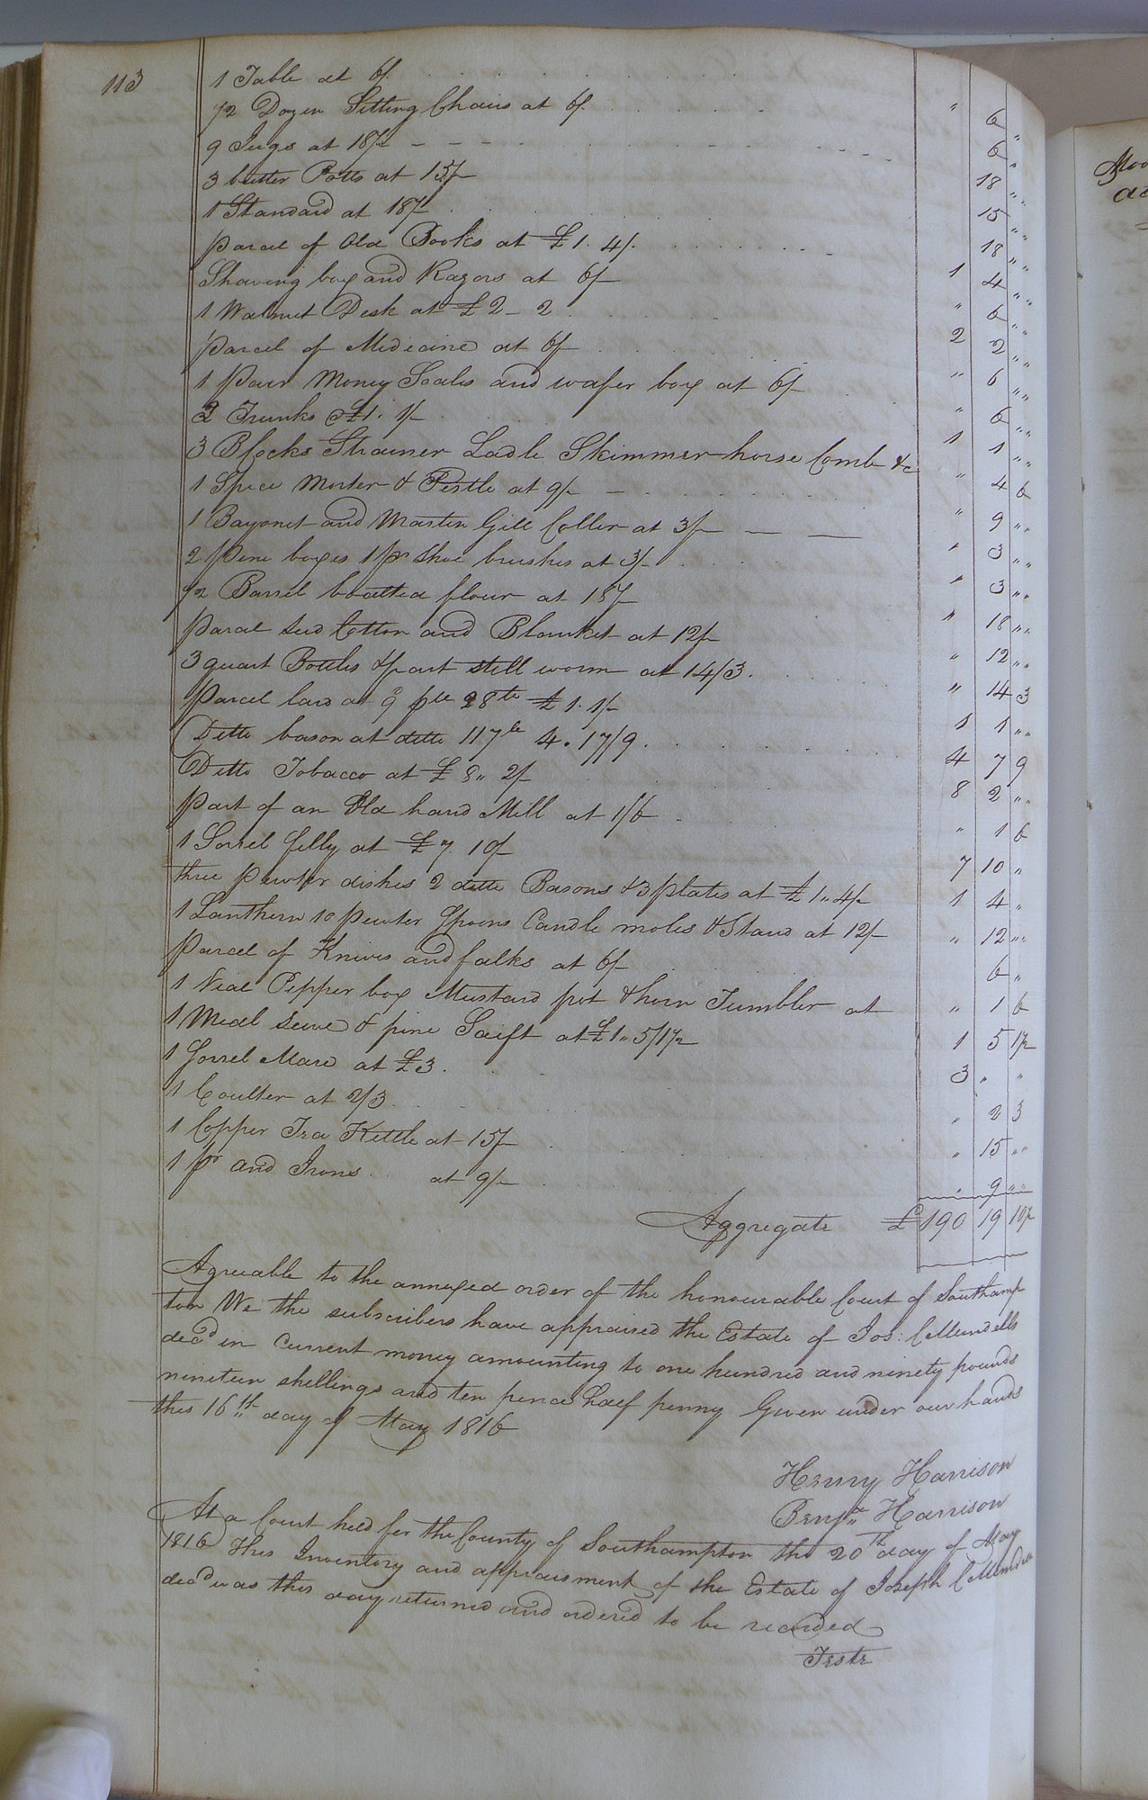 113
1 Table at 6/ " 6 "
1/2 Dozen Sitting Chairs at 6/ 6 "
9 Jugs at 18/- 18 "
3 butter Potts at 15/- 15 "
1 Standard at 18/- 18 "
Parcel of Old Books at £1. 4/. 1 4 "
Shaving box and Razors at 6/- " 6 "
1 Walnut Desk at £2-2 2 2 "
Parcel of Medicine at 6/ " 6 "
1 pair Money Scales and wafer box at 6/- " 6 "
2 Trunks @ £1. 1/- 1 1 "
3 Blocks Strainer Ladle Skimmer horse Comb &c " 4 6
1 Spice Morter & Pestle at 9/- " 9 "
1 Bayonet and Martin Gill Coller at 3/- " 3 "
2 Pine boxes 1 pr Shoe brushes at 3/- " 3 "
1/2 Barrel boalted flour at 18/ " 18 "
Parcel seed Cotton and Blanket at 12/- " 12 "
3 quart Bottles & part still worm at 14/3. " 14 3
Parcel lard at 9 28 £1. 1/- 1 1 "
Ditto bason at ditto 117 4. 17/9. 4 7 9
Ditto Tobacco at £8" 2/- 8 2 "
Part of an Old hand Mill at 1/6 " 1 6
1 Sorrel filly at £7 10/- 7 10 "
three pewter dishes 2 ditto Basons & 3 plates at £1" 4/- 1 4 "
1 Lanthern 10 pewter Spoons Candle moles & Stand at 12/- " 12 "
Parcel of Knives and falks at 6/- 6 "
1 Neal Pepper box Mustard pot & horn Tumbler at " 1 6
1 Meal seive & pine Saift at £1" 5/1 1/2 1 5 1 1/2
1 Sorrel Mare at £3. 3 " "
1 Coulter at 2/3 " 2 3
1 Copper Tea Kettle at 15/- " 15 "
1 pr and Irons at 9/- " 9 "
Aggregate £190 19 10 1/2
Agreeable to the annexed order of the honourable Court of Southamp
ton We the subscribers have appraised the Estate of Jos: CMundells
decd in Current money amounting to one hundred and ninety pounds
nineteen shellings and ten pence half penny Given under our hands
this 16th day of May 1816
Henry Harrison
Benjn Harrison
At a Court held for the County of Southampton the 20th day of May
1816 This Inventory and appraisment of the Estate of Joseph CMundell
decd was this day returned and ordered to be recorded
Teste